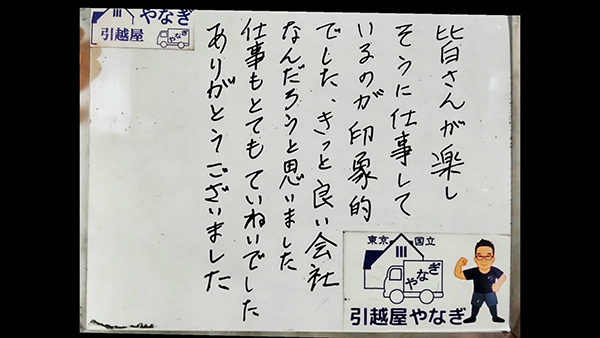 やなぎ
引越屋
やなぎ
皆さんが楽し
そうに仕事して
いるのが印象的
でした、きっと良い会社
なんだろうと思いました
仕事もとてもていねいでした
ありがとうございました
東京 国立
やなぎ
引越屋やなぎ